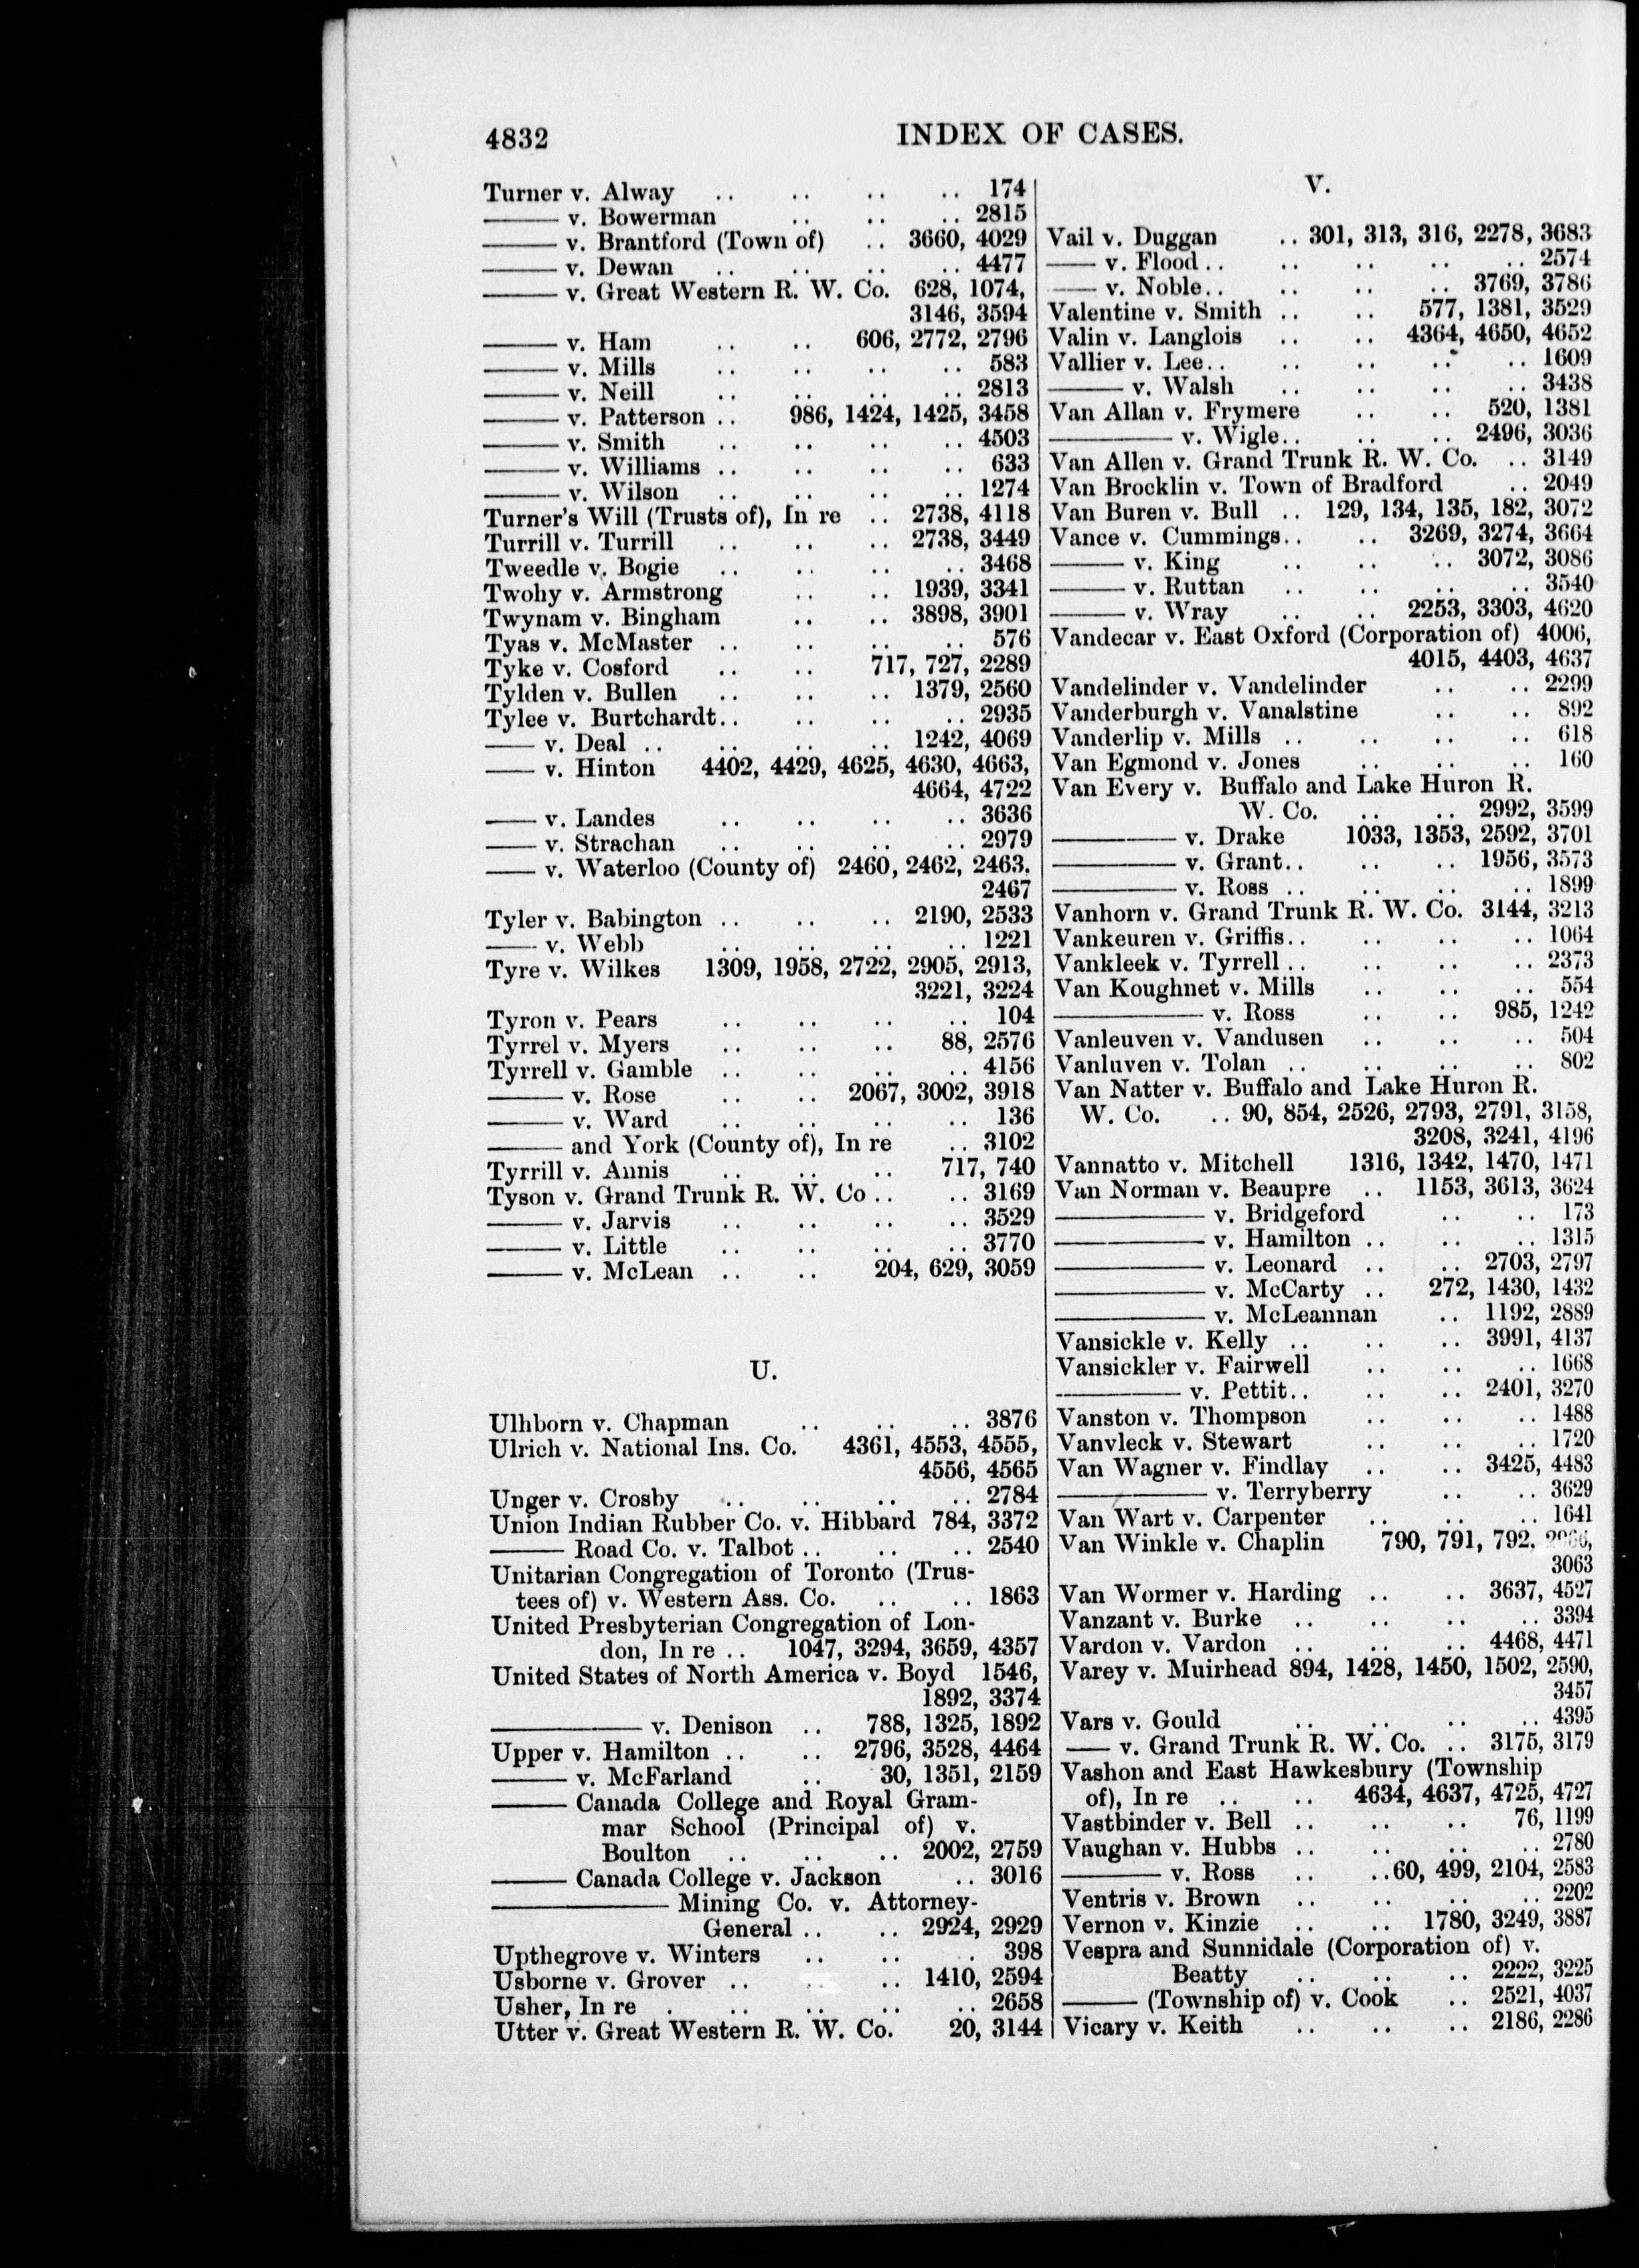 4832
INDEX OF CASES.
Turner v. Alway .. .. .. .. 174
—— v. Bowerman .. .. .. 2815
—— v. Brantford (Town of) .. 3660, 4029
—— v. Dewan .. .. .. .. 4477
—— v. Great Western R. W. Co. 628, 1074,
3146, 3594
—— v. Ham .. .. 606, 2772, 2796
—— v. Mills .. .. .. .. 583
—— v. Neill .. .. .. .. 2813
—— v. Patterson .. 986, 1424, 1425, 3458
—— v. Smith .. .. .. .. 4503
—— v. Williams .. .. .. .. 633
—— v. Wilson .. .. .. .. 1274
Turner's Will (Trusts of), In re .. 2738, 4118
Turrill v. Turrill .. .. .. 2738, 3449
Tweedle v. Bogie .. .. .. .. 3468
Twohy v. Armstrong .. .. 1939, 3341
Twynam v. Bingham .. .. 3898, 3901
Tyas v. McMaster .. .. .. .. 576
Tyke v. Cosford .. .. 717, 727, 2289
Tylden v. Bullen .. .. .. 1379, 2560
Tylee v. Burtchardt.. .. .. .. 2935
—— v. Deal .. .. .. .. 1242, 4069
—— v. Hinton 4402, 4429, 4625, 4630, 4663,
4664, 4722
—— v. Landes .. .. .. .. 3636
—— v. Strachan .. .. .. .. 2979
—— v. Waterloo (County of) 2460, 2462, 2463,
2467
Tyler v. Babington .. .. .. 2190, 2533
—— v. Webb .. .. .. .. 1221
Tyre v. Wilkes 1309, 1958, 2722, 2905, 2913,
3221, 3224
Tyron v. Pears .. .. .. .. 104
Tyrrel v. Myers .. .. .. 88, 2576
Tyrrell v. Gamble .. .. .. .. 4156
—— v. Rose .. .. 2067, 3002, 3918
—— v. Ward .. .. .. .. 136
—— and York (County of), In re .. 3102
Tyrrill v. Annis .. .. .. 717, 740
Tyson v. Grand Trunk R. W. Co .. .. 3169
—— v. Jarvis .. .. .. .. 3529
—— v. Little .. .. .. .. 3770
—— v. McLean .. .. 204, 629, 3059
U.
Ulhborn v. Chapman .. .. .. 3876
Ulrich v. National Ins. Co. 4361, 4553, 4555,
4556, 4565
Unger v. Crosby .. .. .. .. 2784
Union Indian Rubber Co. v. Hibbard 784, 3372
—— Road Co. v. Talbot .. .. .. 2540
Unitarian Congregation of Toronto (Trus-
tees of) v. Western Ass. Co. .. .. 1863
United Presbyterian Congregation of Lon-
don, In re .. 1047, 3294, 3659, 4357
United States of North America v. Boyd 1546,
1892, 3374
—— v. Denison .. 788, 1325, 1892
Upper v. Hamilton .. .. 2796, 3528, 4464
—— v. McFarland .. 30, 1351, 2159
—— Canada College and Royal Gram-
mar School (Principal of) v.
Boulton .. .. .. 2002, 2759
—— Canada College v. Jackson .. 3016
—— Mining Co. v. Attorney-
General .. .. 2924, 2929
Upthegrove v. Winters .. .. . 398
Usborne v. Grover .. .. .. 1410, 2594
Usher, In re . .. .. .. .. 2658
Utter v. Great Western R. W. Co. 20, 3144
V.
Vail v. Duggan .. 301, 313, 316, 2278, 3683
—— v. Flood.. .. .. .. .. 2574
—— v. Noble.. .. .. .. 3769, 3786
Valentine v. Smith .. .. 577, 1381, 3529
Valin v. Langlois .. .. 4364, 4650, 4652
Vallier v. Lee.. .. .. .. .. 1609
—— v. Walsh .. .. .. .. 3438
Van Allan v. Frymere .. .. 520, 1381
—— v. Wigle.. .. .. 2496, 3036
Van Allen v. Grand Trunk R. W. Co. .. 3149
Van Brocklin v. Town of Bradford .. 2049
Van Buren v. Bull .. 129, 134, 135, 182, 3072
Vance v. Cummings.. .. 3269, 3274, 3664
—— v. King .. .. .. 3072, 3086
—— v. Ruttan .. .. .. .. 3540
—— v. Wray .. .. 2253, 3303, 4620
Vandecar v. East Oxford (Corporation of) 4006,
4015, 4403, 4637
Vandelinder v. Vandelinder .. .. 2299
Vanderburgh v. Vanalstine .. .. 892
Vanderlip v. Mills .. .. .. .. 618
Van Egmond v. Jones .. .. .. 160
Van Every v. Buffalo and Lake Huron R.
W. Co. .. .. 2992, 3599
—— v. Drake 1033, 1353, 2592, 3701
—— v. Grant.. .. .. 1956, 3573
—— v. Ross .. .. .. .. 1899
Vanhorn v. Grand Trunk R. W. Co. 3144, 3213
Vankeuren v. Griffis.. .. .. .. 1064
Vankleek v. Tyrrell .. .. .. .. 2373
Van Koughnet v. Mills .. .. .. 554
—— v. Ross .. .. 985, 1242
Vanleuven v. Vandusen .. .. .. 504
Vanluven v. Tolan .. .. .. .. 802
Van Natter v. Buffalo and Lake Huron R.
W. Co. .. 90, 854, 2526, 2793, 2791, 3158,
3208, 3241, 4196
Vannatto v. Mitchell 1316, 1342, 1470, 1471
Van Norman v. Beaupre .. 1153, 3613, 3624
—— v. Bridgeford .. .. 173
—— v. Hamilton .. .. .. 1315
—— v. Leonard .. .. 2703, 2797
—— v. McCarty .. 272, 1430, 1432
—— v. McLeannan .. 1192, 2889
Vansickle v. Kelly .. .. .. 3991, 4137
Vansickler v. Fairwell .. .. .. 1668
—— v. Pettit.. .. .. 2401, 3270
Vanston v. Thompson .. .. .. 1488
Vanvleck v. Stewart .. .. .. 1720
Van Wagner v. Findlay .. .. 3425, 4483
—— v. Terryberry .. .. 3629
Van Wart v. Carpenter .. .. .. 1641
Van Winkle v. Chaplin 790, 791, 792,
3063
Van Wormer v. Harding .. .. 3637, 4527
Vanzant v. Burke .. .. .. .. 3394
Vardon v. Vardon .. .. .. 4468, 4471
Varey v. Muirhead 894, 1428, 1450, 1502, 2590,
3457
Vars v. Gould .. .. .. .. 4395
—— v. Grand Trunk R. W. Co. .. 3175, 3179
Vashon and East Hawkesbury (Township
of), In re .. .. 4634, 4637, 4725, 4727
Vastbinder v. Bell .. .. .. 76, 1199
Vaughan v. Hubbs .. .. .. .. 2780
—— v. Ross .. .. 60, 499, 2104, 2583
Ventris v. Brown .. .. .. .. 2202
Vernon v. Kinzie .. .. 1780, 3249, 3887
Vespra and Sunnidale (Corporation of) v.
Beatty .. .. .. 2222, 3225
—— (Township of) v. Cook .. 2521, 4037
Vicary v. Keith .. .. .. 2186, 2286